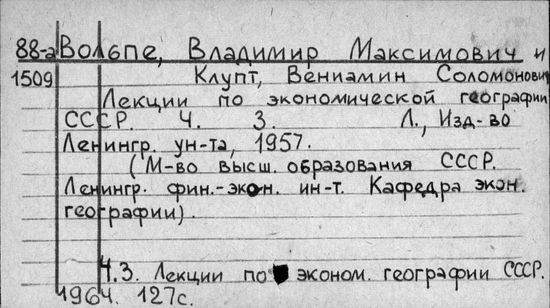 88-а Вольпе, Владимир Максимович и
1509 Клупт, Вениамин Соломонович
Лекции по экономической географии
СССР. Ч. 3. Л., Изд-во
Ленингр. ун-та, 1957.
(М-во высш. образования СССР.
Ленингр. фин.-экон. ин-т. Кафедра экон.
географии).
Ч.3. Лекции по эконом. географии СССР.
1964. 127с.